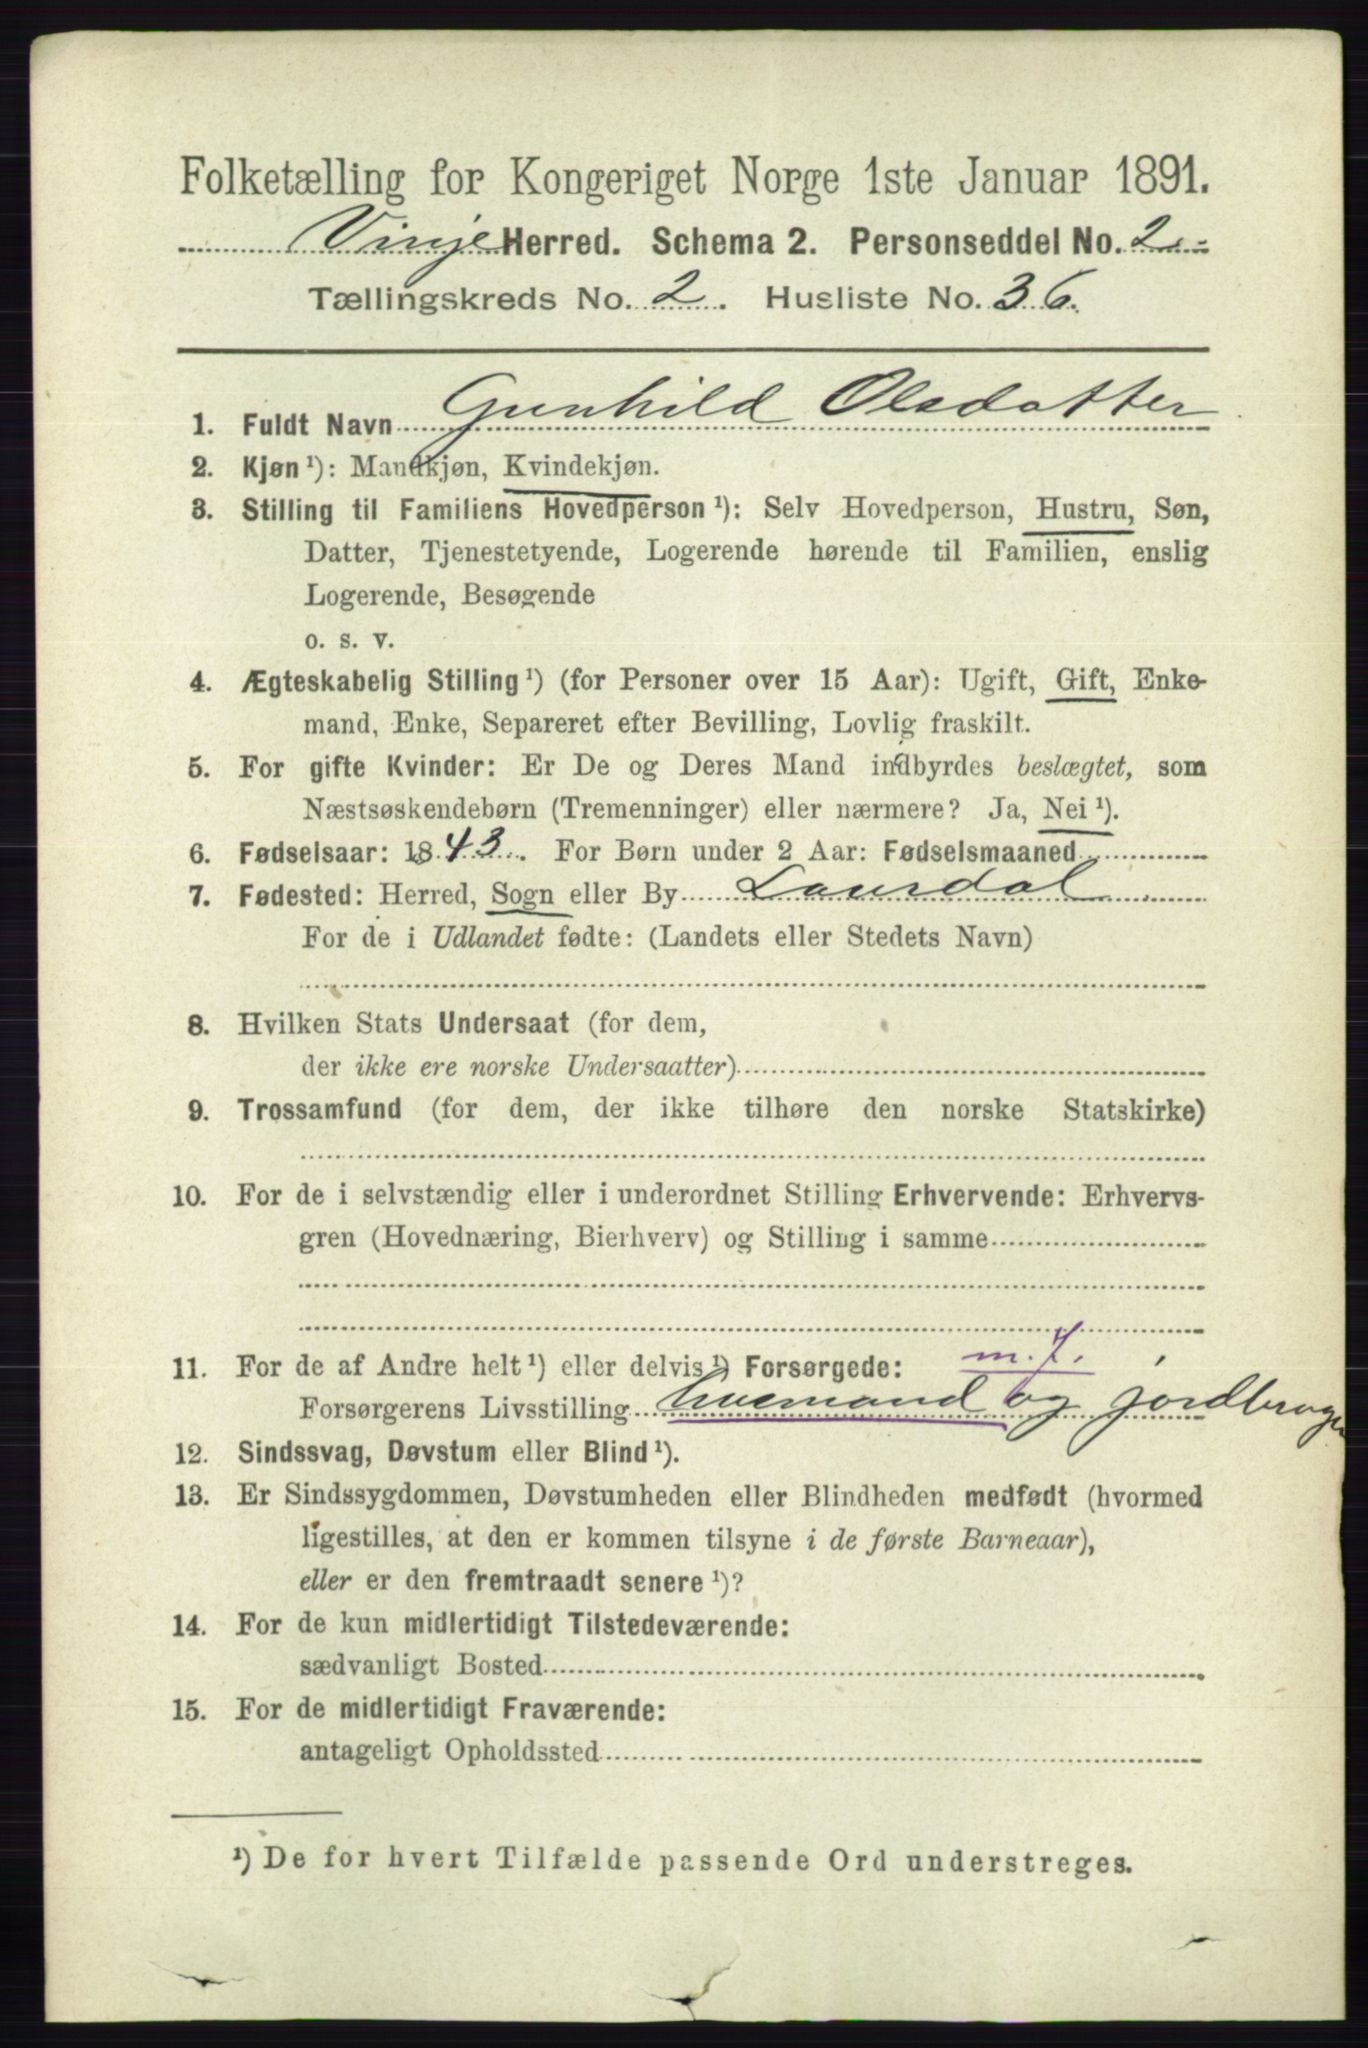 Folketælling for Kongeriget Norge 1ste Januar 1891.
Vinje Herred. Schema 2. Personseddel No. 2.
Tællingskreds No. 2. Husliste No. 36.
1. Fuldt Navn Gunhild Olsdatter
2. Kjøn ¹): Mandkjøn, Kvindekjøn.
3. Stilling til Familiens Hovedperson ¹): Selv Hovedperson, Hustru, Søn,
Datter, Tjenestetyende, Logerende hørende til Familien, enslig
Logerende, Besøgende
o. s. v.
4. Ægteskabelig Stilling ¹) (for Personer over 15 Aar): Ugift, Gift, Enke-
mand, Enke, Separeret efter Bevilling, Lovlig fraskilt.
5. For gifte Kvinder: Er De og Deres Mand indbyrdes beslægtet, som
Næstsøskendebørn (Tremenninger) eller nærmere? Ja, Nei ¹).
6. Fødselsaar: 1843. For Børn under 2 Aar: Fødselsmaaned
7. Fødested: Herred, Sogn eller By Laurdal
For de i Udlandet fødte: (Landets eller Stedets Navn)
8. Hvilken Stats Undersaat (for dem,
der ikke ere norske Undersaatter)
9. Trossamfund (for dem, der ikke tilhøre den norske Statskirke)
10. For de i selvstændig eller i underordnet Stilling Erhvervende: Erhvervs-
gren (Hovednæring, Bierhverv) og Stilling i samme
11. For de af Andre helt ¹) eller delvis ¹) Forsørgede: m. f.
Forsørgerens Livsstilling og jordbruger
12. Sindssvag, Døvstum eller Blind ¹).
13. Er Sindssygdommen, Døvstumheden eller Blindheden medfødt (hvormed
ligestilles, at den er kommen tilsyne i de første Barneaar),
eller er den fremtraadt senere ¹)?
14. For de kun midlertidigt Tilstedeværende:
sædvanligt Bosted
15. For de midlertidigt Fraværende:
antageligt Opholdssted
¹) De for hvert Tilfælde passende Ord understreges.